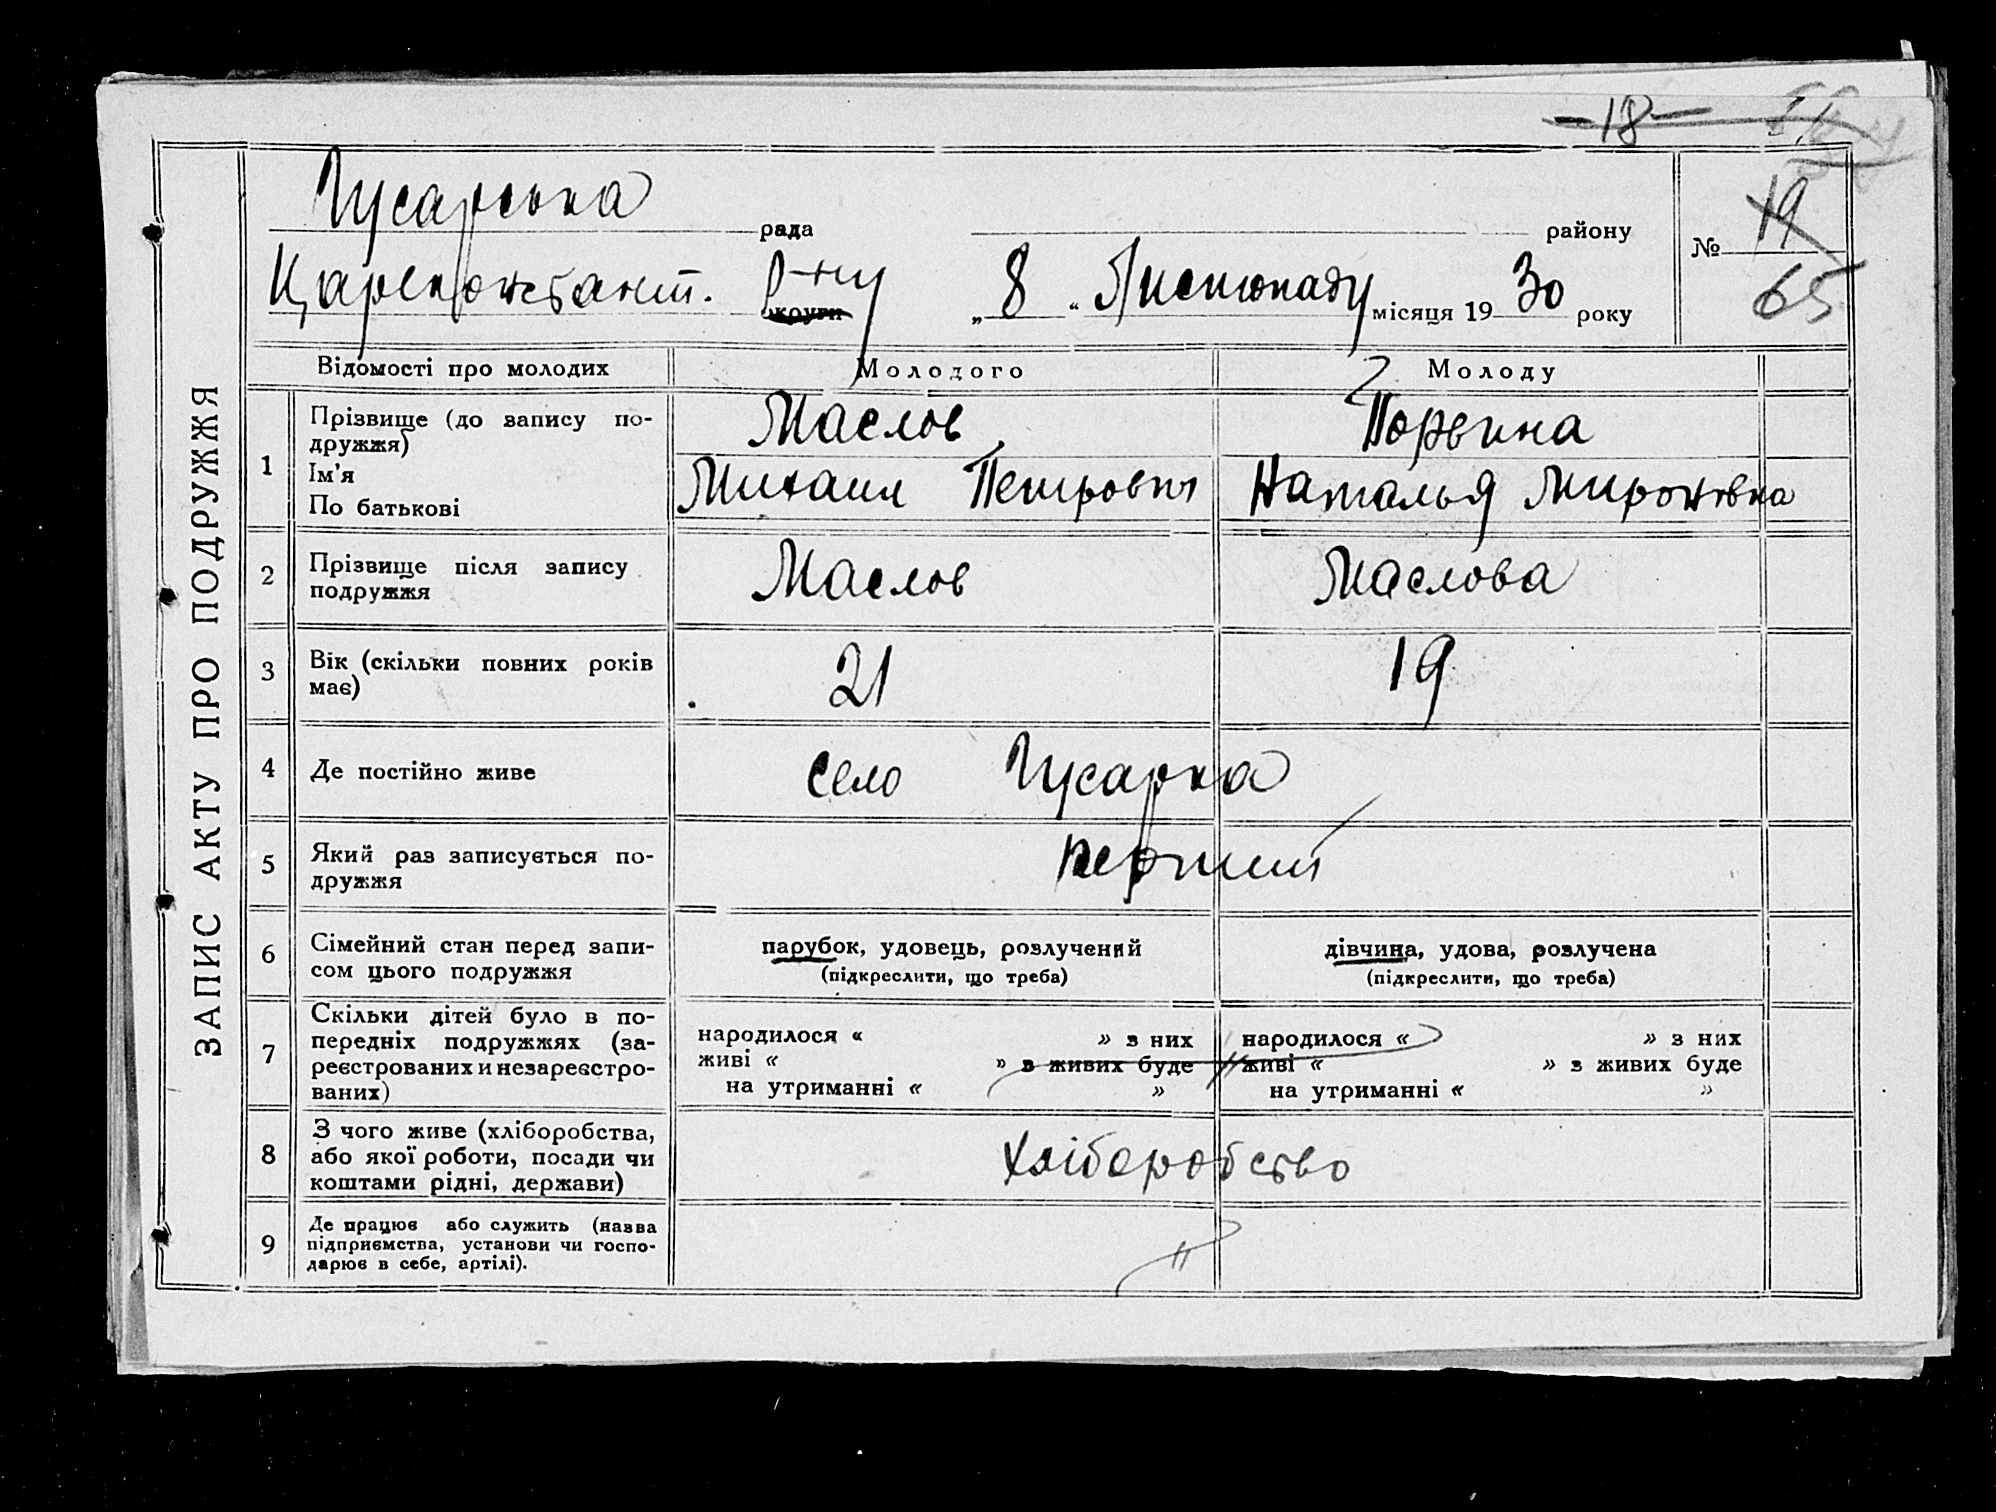 -18-
Гусарська рада району
№ 19
Цареконстант. р-ну округи „ 8 “ Листопаду місяця 19 30 року
65
ЗАПИС АКТУ ПРО ПОДРУЖЖЯ
Відомості про молодих Молодого Молоду
1 Прізвище (до запису по-
дружжя)
Маслов
Ім'я
По батькові
Михаил Петрович Наталья Миронівна
2 Прізвище після запису
подружжя
Маслов Маслова
3 Вік (скільки повних років
має)
21 19
4 Де постійно живе село Гусарка
5 Який раз записується по-
дружжя
первий
6 Сімейний стан перед запи-
сом цього подружжя
парубок, удовець, розлучений дівчина, удова, розлучена
(підкреслити, що треба) (підкреслити, що треба)
7 Скільки дітей було в по-
передніх подружжях (за-
реєстрованих и незареєстро-
ваних)
народилося « » з них народилося « » з них
живі « » з живих буде живі « » з живих буде
на утриманні « » на утриманні « »
8 З чого живе (хліборобства,
або якої роботи, посади чи
коштами рідні, держави)
Хліборобство
9 Де працює або служить (назва
підприємства, установи чи госпо-
дарює в себе, артілі).
"